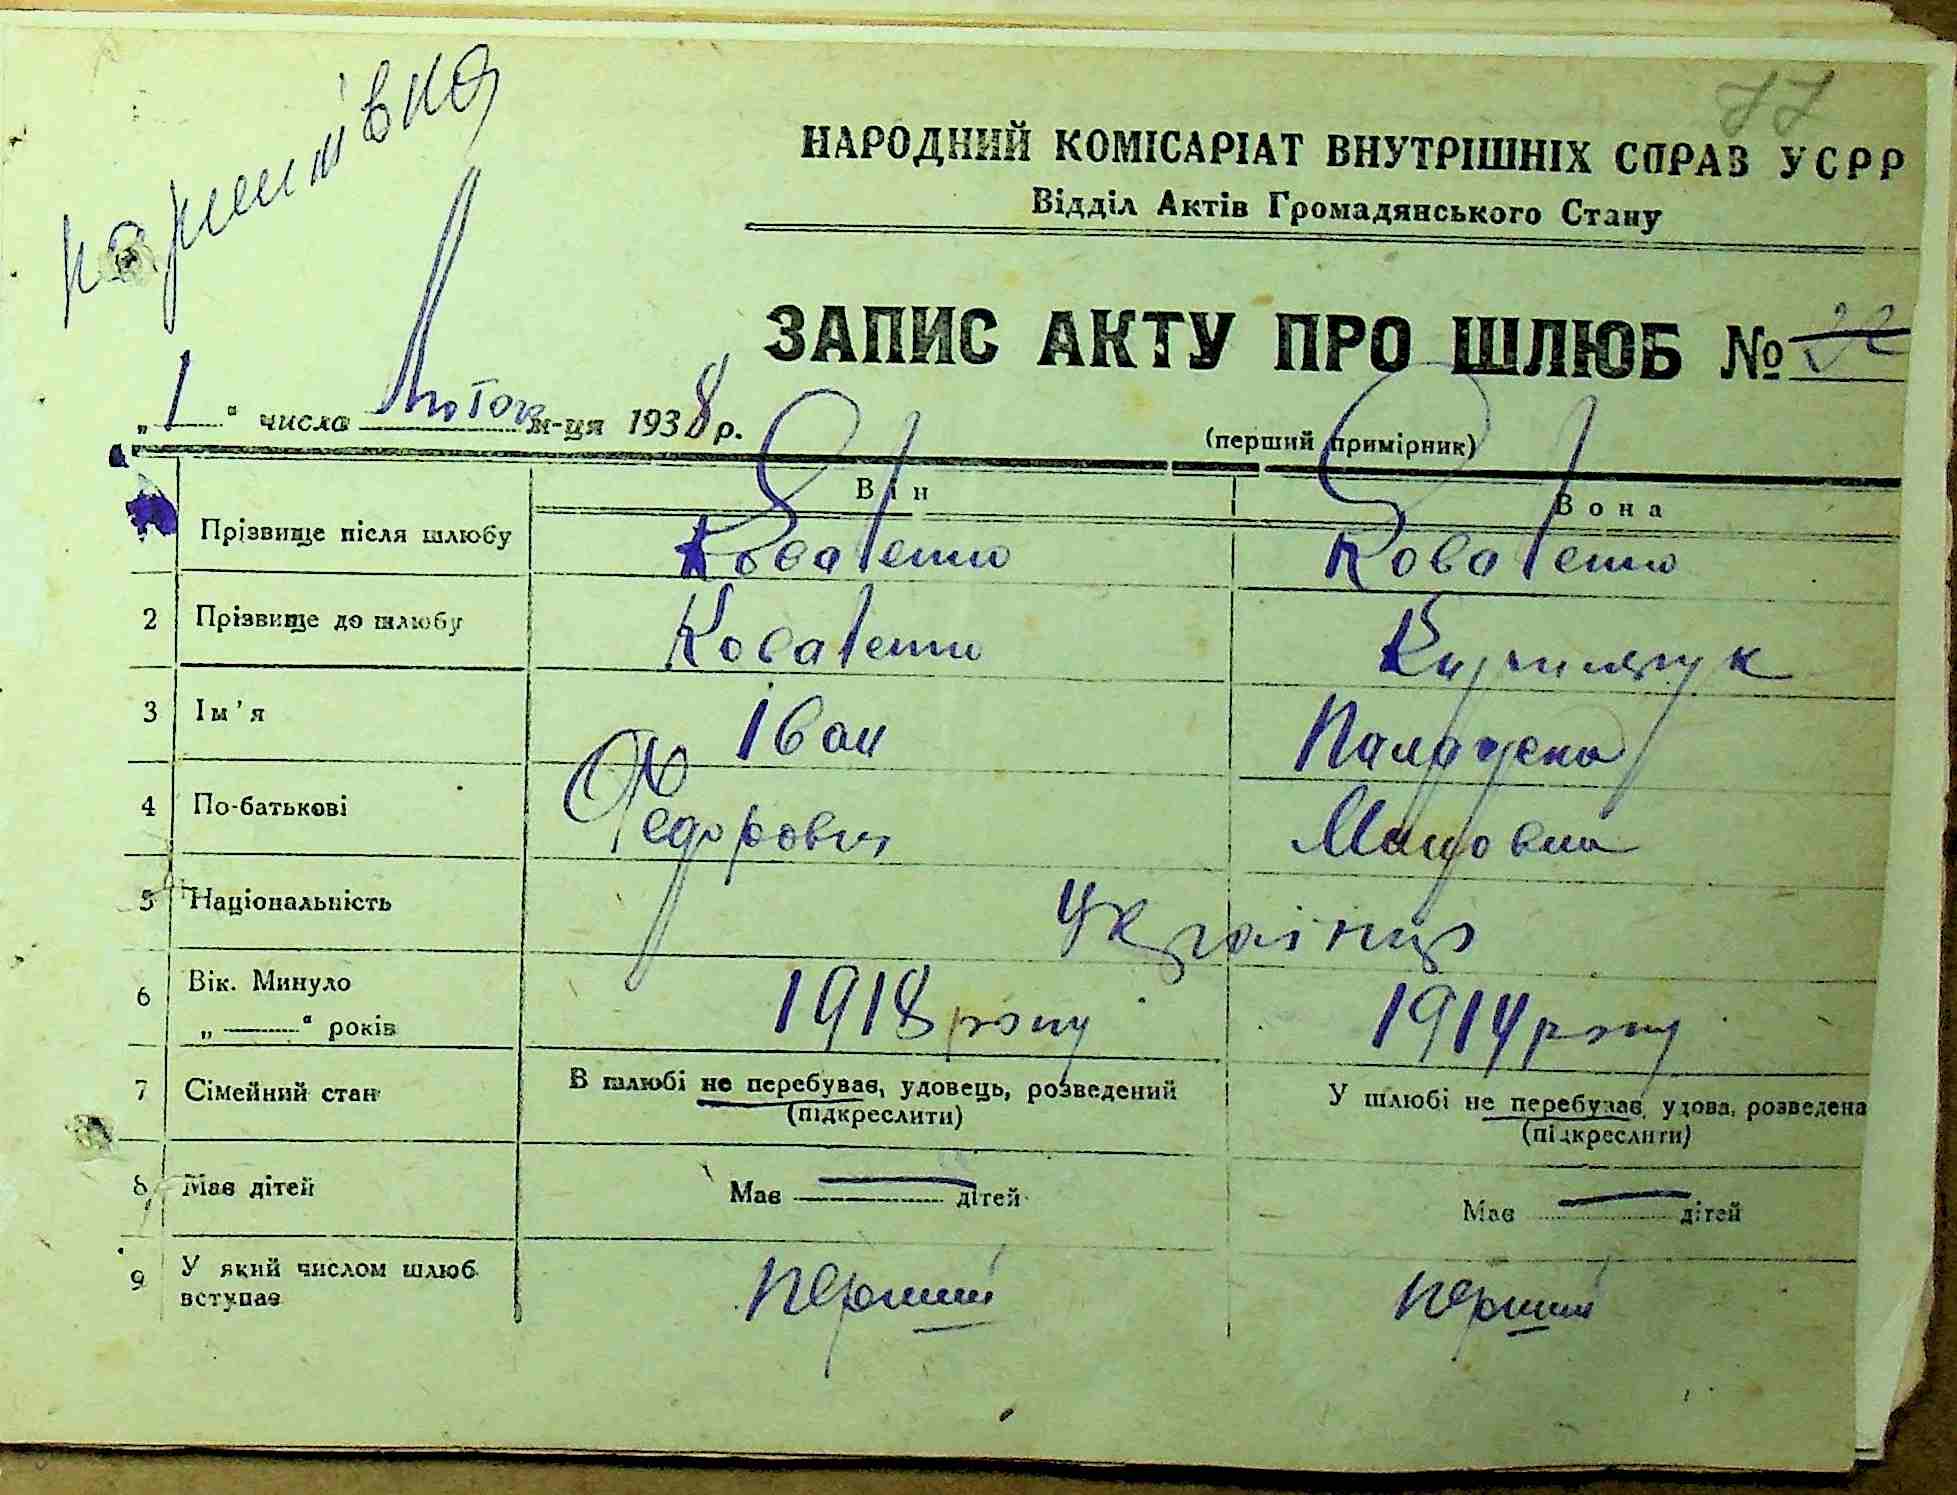 77
НАРОДНИЙ КОМІСАРІАТ ВНУТРІШНІХ СПРАВ УСРР
Відділ Актів Громадянського Стану
ЗАПИС АКТУ ПРО ШЛЮБ №
„1“ числа Лютого м-ця 1938 р.
(перший примірник)
Він Вона
Прізвище після шлюбу Коваленко Коваленко
2 Прізвище до шлюбу Коваленко
3 Ім'я Іван
4 По-батькові Федорович
5 Національність Українці
6 Вік. Минуло 1918 року 1914 року
„ “ років
7 Сімейний стан В шлюбі не перебуває, удовець, розведений У шлюбі не перебуває, удова, розведена
(підкреслити) (підкреслити)
8 Має дітей Має — дітей Має — дітей
9 У який числом шлюб вступає перший перший